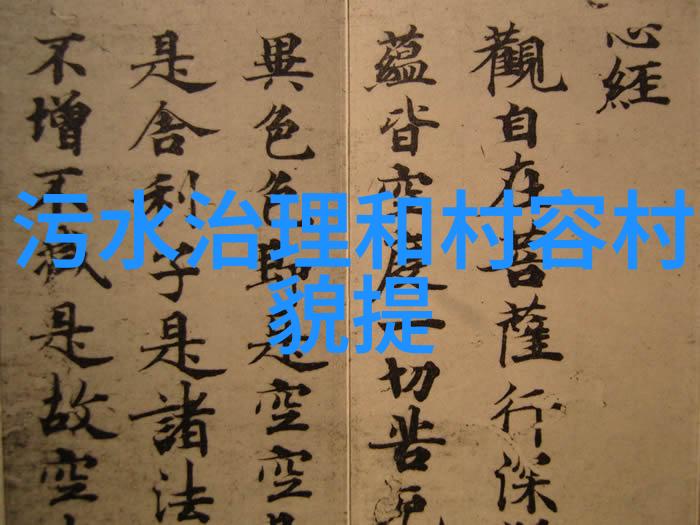 心經
觀自在菩薩行深
蘊皆空度一切苦厄
異色色即是空空
是舍利子是諸法
不增不減是故空
污水治理和村容村
貌提